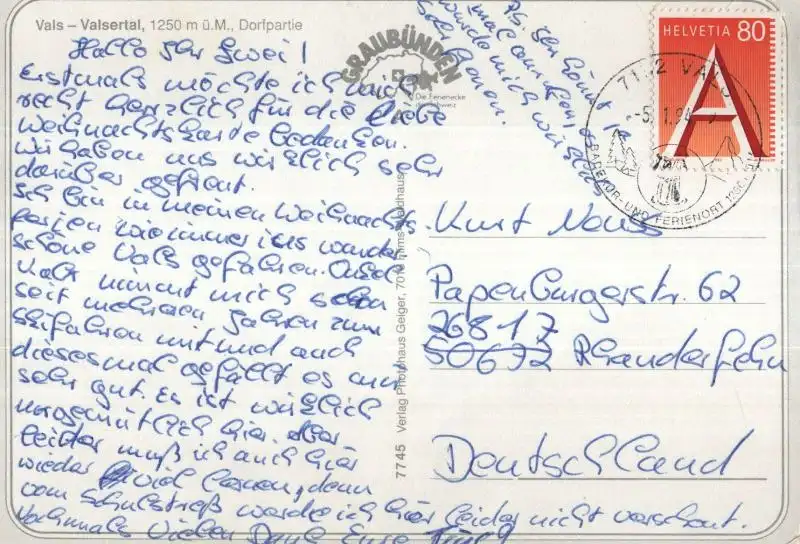 Vals – Valsertal, 1250 m ü.M., Dorfpartie
GRAUBÜNDEN
Die Ferienecke
der Schweiz
HELVETIA 80
A
7132 VALS
-5.1.94
BADEKUR- UND FERIENORT 1250
P.S. Ihr könnt ja
mal anrufen, es
würde mich wirklich
sehr freuen.
Hallo Ihr Zwei!
Erstmals möchte ich mich
recht herzlich für die liebe
Weihnachtskarte bedanken.
Wir haben uns wirklich sehr
darüber gefreut.
Ich bin in meinen Weihnachts-
ferien wie immer ins wunder
schöne Vals gefahren. Onkel
Karl nimmt mich schon
seit mehreren Jahren zum
Skifahren mit und auch
diesesmal gefällt es mir
sehr gut. Es ist wirklich
urgemütlich hier. Aber
leider muß ich auch hier
wieder viel lernen, denn
vom Schulstreß werde ich hier leider nicht verschont.
Nochmals vielen Dank Eure
7745 Verlag Photohaus Geiger, 7018 Flims-Waldhaus
Kurt Neuss
Papenburgerstr. 62
26817
50672 Rhauderfehn
Deutschland